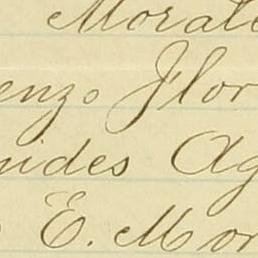 Morale
enzo Flor
nides Ag
E. Mor